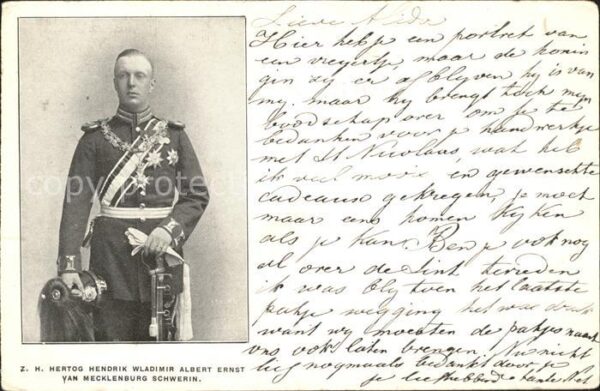 Lieve Alida
Hier heb je een portret van
een vrijertje, maar de konin
gin zij er afblijven hij is van
mij. maar hij brengt toch mijn
boodschap over om je te
bedanken voor je handwerkje
met St Nicolaas, wat heb
ik veel mooie en gewenschte
cadeaux gekregen, je moet
maar eens komen kijken
als je kan. Ben je ook nog
al over de Sint tevreden
ik was blij toen het laatste
pakje wegging het was druk
want wij moesten de pakjes naast
ons ook laten brengen. Nu nicht
lig nogmaals bedankt door je
je liefhebbende tante
Z. H. HERTOG HENDRIK WLADIMIR ALBERT ERNST
VAN MECKLENBURG SCHWERIN.
copyright protected